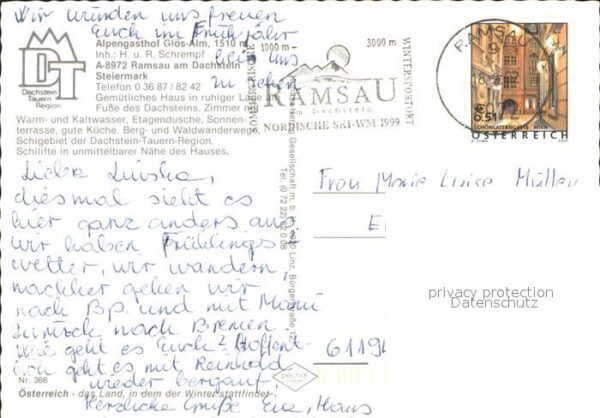 Wir würden uns freuen
Euch im Frühjahr
bei uns
zu sehen
Dachstein
Tauern
Region
Alpengasthof Glös-Alm, 1510 m
Inh.: H. u. R. Schrempf
A-8972 Ramsau am Dachstein
Steiermark
Telefon 0 36 87 / 82 42
Gemütliches Haus in ruhiger Lage
Fuße des Dachsteins, Zimmer
Warm- und Kaltwasser, Etagendusche, Sonnen-
terrasse, gute Küche. Berg- und Waldwanderwege.
Schigebiet der Dachstein-Tauern-Region,
Schilifte in unmittelbarer Nähe des Hauses.
1000 m - 3000 m
WINTERSPORTORT
RAMSAU
am Dachstein
NORDISCHE SKI-WM 1999
RAMSAU
€ 0.51
SCHÖNLATERNGASSE WIEN
ÖSTERREICH
Liebe
diesmal sieht es
hier ganz anders aus
wir haben Frühlings
wetter, wir wandern,
nachher gehen wir
nach Bp. und mit
zurück nach Bremen.
Wie geht es Euch? Hoffent-
lich geht es mit Reinhold
wieder bergauf.
Herzliche Grüße Eva, Hans
Frau Marie Luise Müller
E
6119
privacy protection
Datenschutz
Nr. 366
Österreich - das Land, in dem der Winter stattfindet